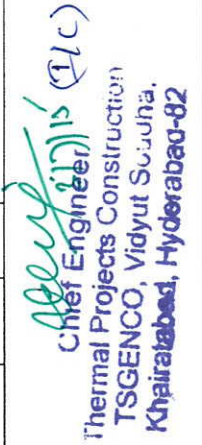 (I/C)
Chief Engineer
Thermal Projects Construction
TSGENCO, Vidyut Soudha,
Khairatabad, Hyderabad-82